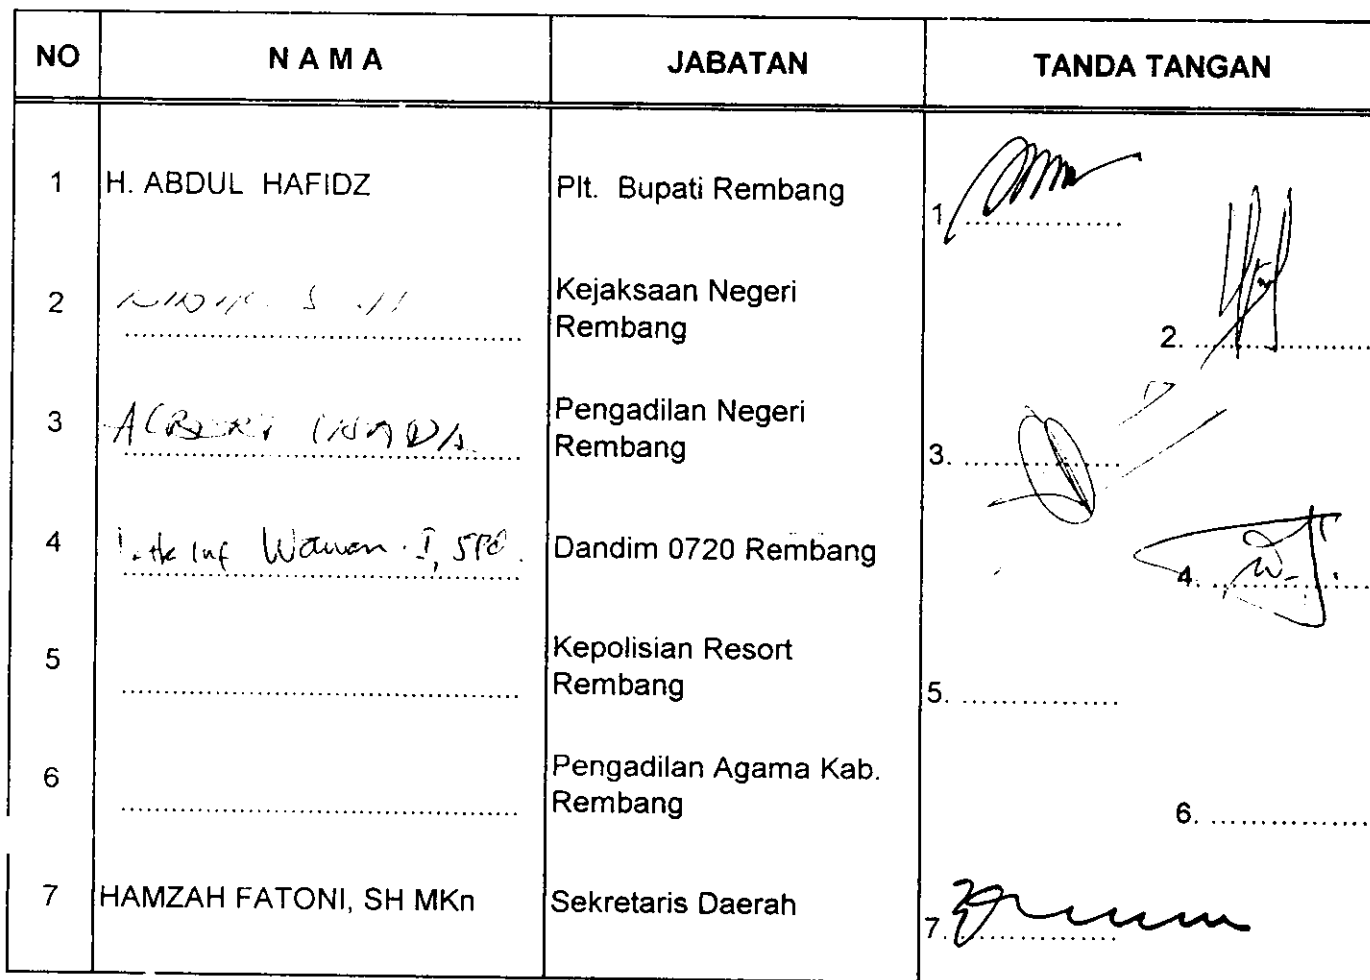 NO N A M A JABATAN TANDA TANGAN
1 H. ABDUL HAFIDZ Plt. Bupati Rembang 1. ...............
2 Kejaksaan Negeri
Rembang
2. ...............
3 Pengadilan Negeri
Rembang
3. ...............
4 Inf Wawan. I, Dandim 0720 Rembang 4. ...............
5 Kepolisian Resort
Rembang
5. ...............
6 Pengadilan Agama Kab.
Rembang
6. ...............
7 HAMZAH FATONI, SH MKn Sekretaris Daerah 7. ...............